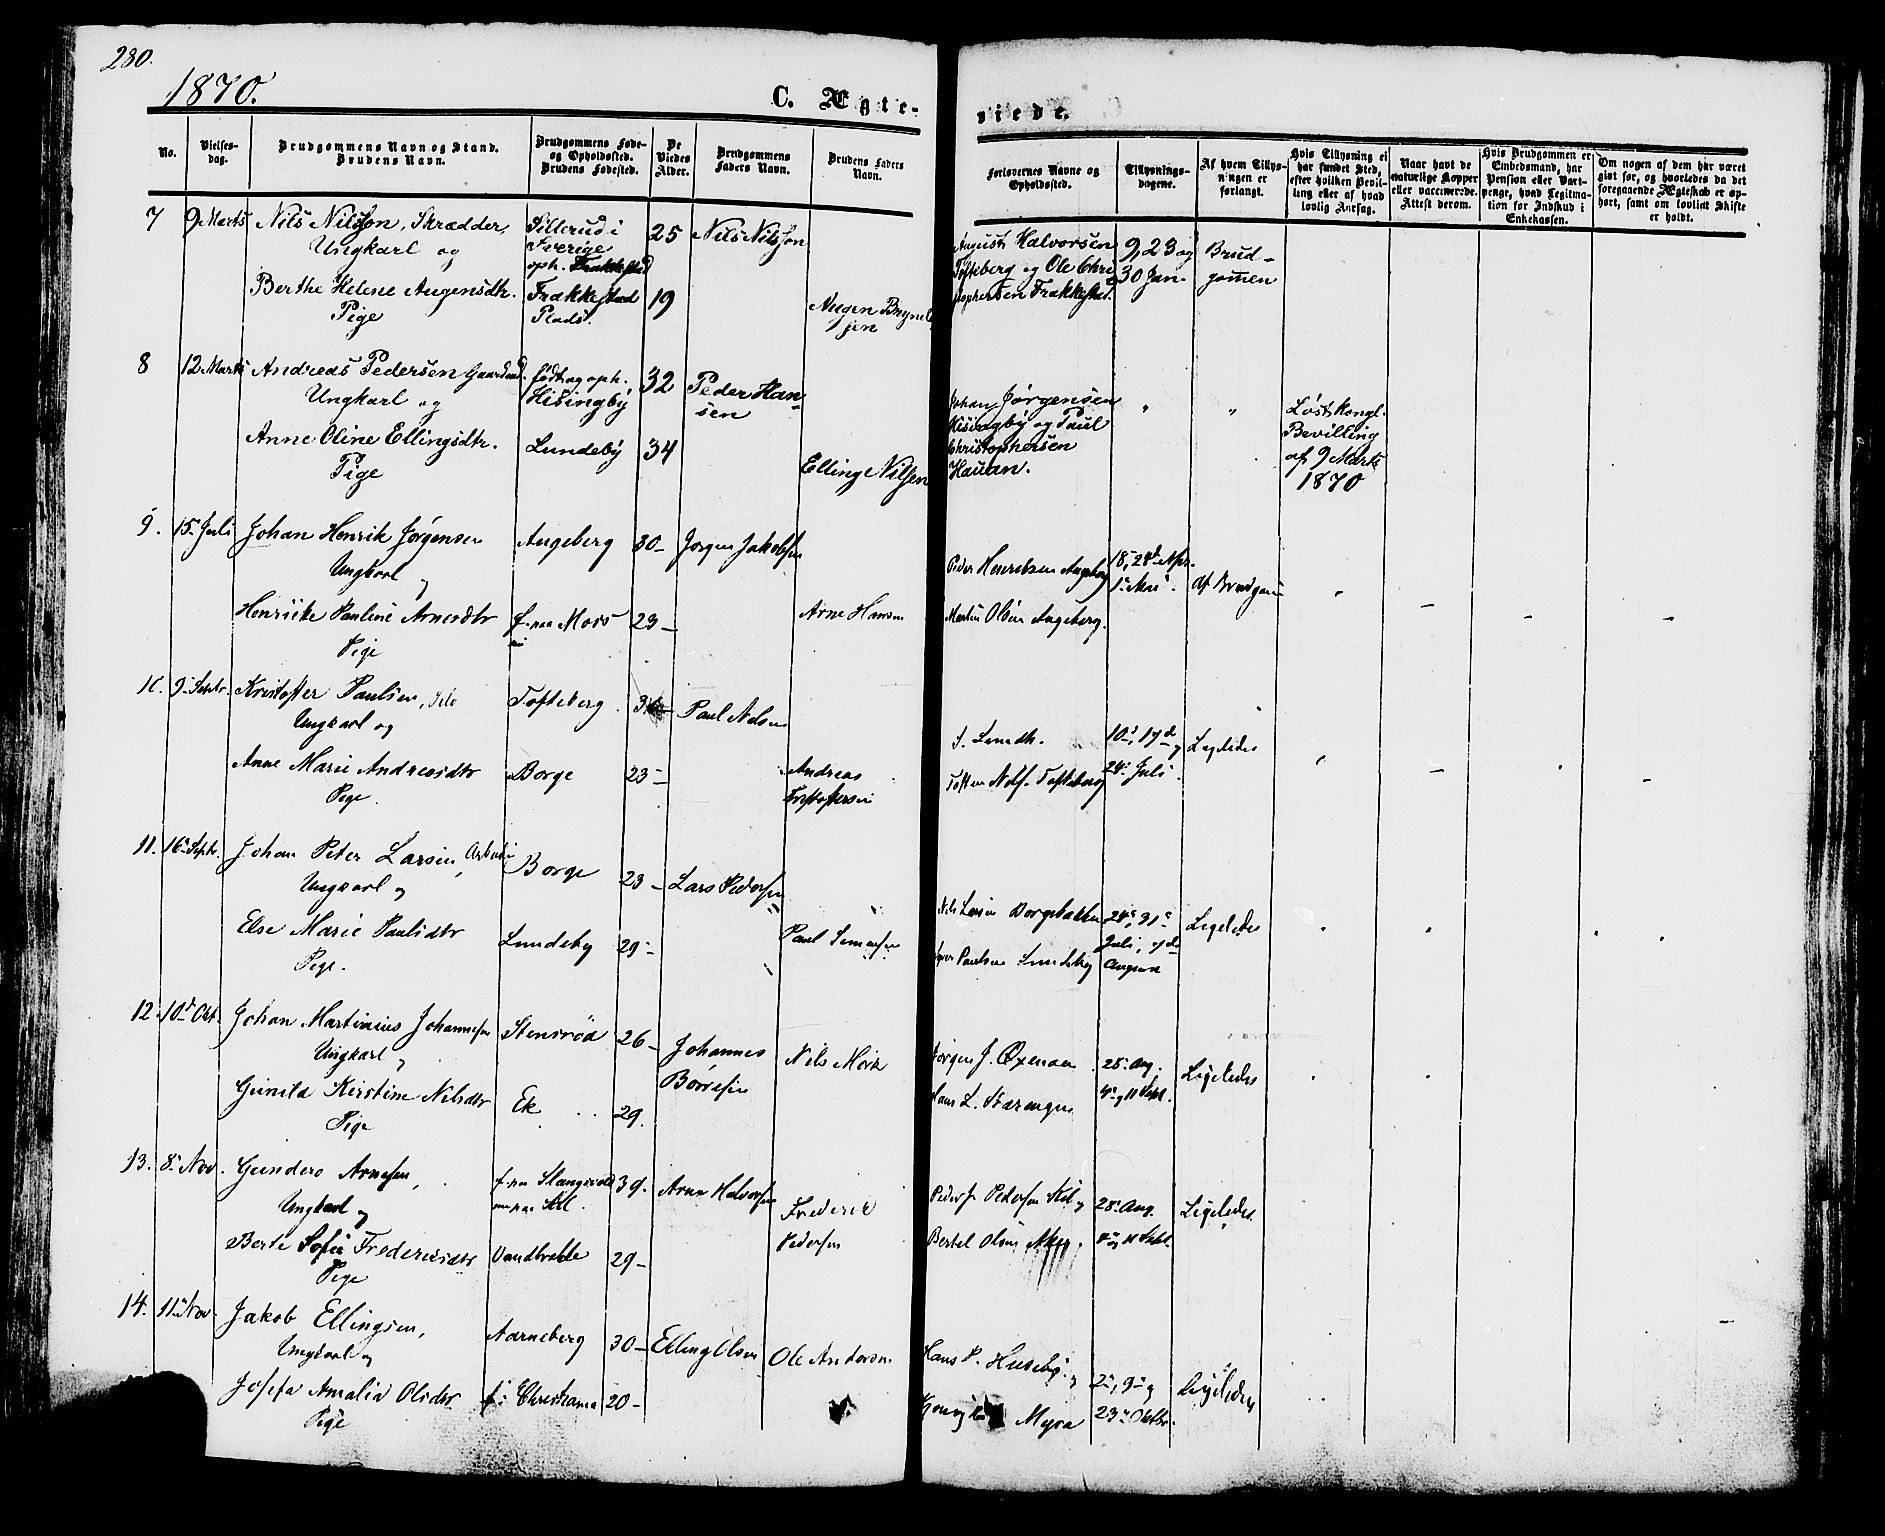 230.
1870.
C. Ægte-
viede.
No.
Vielses-
dag.
Brudgommens Navn og Stand.
Brudens Navn.
Brudgommens Føde-
og Opholdssted.
Brudens Fødested.
De
Viedes
Alder.
Brudgommens
Faders Navn.
Brudens Faders
Navn.
Forlovernes Navne og
Opholdssted.
Tillysnings-
dagene.
Af hvem Tillys-
ningen er
forlangt.
Hvis Tillysning ei
har fundet Sted,
efter hvilken Bevil-
ling eller af hvad
lovlig Aarsag.
Naar havt de
naturlige Kopper
eller vaccinerede.
Attest derom.
Hvis Brudgommen er
Embedsmand, har
Pension eller Vart-
penge, hvad Legitima-
tion for Indskud i
Enkekassen.
Om nogen af dem har været
gift før, og hvorledes da det
foregaaende Ægteskab er op-
hørt, samt om lovligt Skifte
er holdt.
7
9 Marts
Nils Nilsson, Skrædder,
Ungkarl og
Berthe Helene Augensdtr.
Pige
Sillerud i
Sverige
oph. Frakkestad
Frakkestad
Plads.
25
19
Nils Nilsson
Augen Brynild
sen
August Halvorsen
Tofteberg og Ole Chri
stophersen Frakkestad.
9, 23 og
30 Jan.
Brud-
gommen
8
12 Marts
Andreas Pedersen Gaardmd.
Ungkarl og
Anne Oline Ellingsdtr.
Pige
født og oph.
Hisingby
Lundeby
32
34
Peder Han-
sen
Elling Nilsen
Johan Jørgensen
Hisingby og Paul
Christophersen
Hauan.
"
"
Løst kongl.
Bevilling
af 9 Marts
1870
9.
15 Juli
Johan Henrik Jørgensen
Ungkarl og
Henrikke Pauline Arnesdtr
Pige
Augeberg
f. paa Mors
30
23
Jørgen Jakobsen
Arne Hansen
Peder Henriksen Augeberg
Martin Olsen Augeberg.
18, 24d Apr.
1 Mai.
Af Brudgom
9 Septr.
Kristoffer Paulsen,
Ungkarl og
Anne Marie Andreasdtr
Pige.
Tofteberg
Borge
23
Paul Nilsen
Andreas
Kristoffersen
Tofteberg
10, 17d og
24 Juli.
Ligeledes
11.
16 Septr.
Johan Peter Larsen, Arbeider
Ungkarl og
Else Marie Paulsdtr
Pige.
Borge
Lundeby
23
29
Lars Pedersen
Paul Simensen
Nils Larsen Borgebakken
Paulsen Lundeby
24, 31
Juli, 7d
August
Ligeledes
12.
10d Okt.
Johan Martinius Johannesen
Ungkarl og
Gunild Kirstine Nilsdtr
Pige
Stensrød
Ek
26
29.
Johannes
Børresen
Nils Mork
Jørgen J. Oxenaasen
Hans L.
28 Aug.
4 og 11 Sept.
Ligeledes
13.
8 Nov.
Gunders Arnesen,
Ungkarl og
Berte Sofie Frederiksdtr
Pige
f. paa Slangsvold
Vandbrekke
39.
29
Arne Halvorsen
Frederik
Pedersen
Peder Pedersen
Bertel Olsen
28 Aug.
4 og 11 Sept.
Ligeledes
14.
11 Nov.
Jakob Ellingsen,
Ungkarl og
Josefa Amalia Olsdtr
Pige
Aarneberg
f. i Christiania
30
20
Elling Olsen
Ole Andersen
Hans P. Huseby og
Myra
2, 9 og
23 Oktbr.
Ligeledes